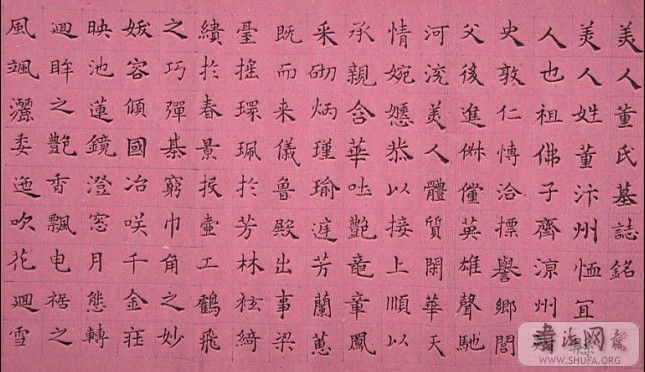 美人董氏墓誌銘
美人姓董汴州恤宜縣
人也祖佛子齊涼州
史敦仁博洽摽譽鄉閭
父後進俶儻英雄聲馳
河渷美人體質閑華天
情婉嫕恭以接上順以
承親含華吐艷竜章鳳
采砌炳瑾瑜庭芳蘭蕙
既而来儀魯殿出事梁
臺搖環珮於芳林袨綺
繢於春景投壷工鶴飛
之巧彈棊窮巾角之妙
妖容傾國冶咲千金莊
映池蓮鏡澄窓月態轉
迴眸之艷香飄曳裾之
風颯灑委迤吹花迴雪
书法网
WWW.SHUFA.ORG